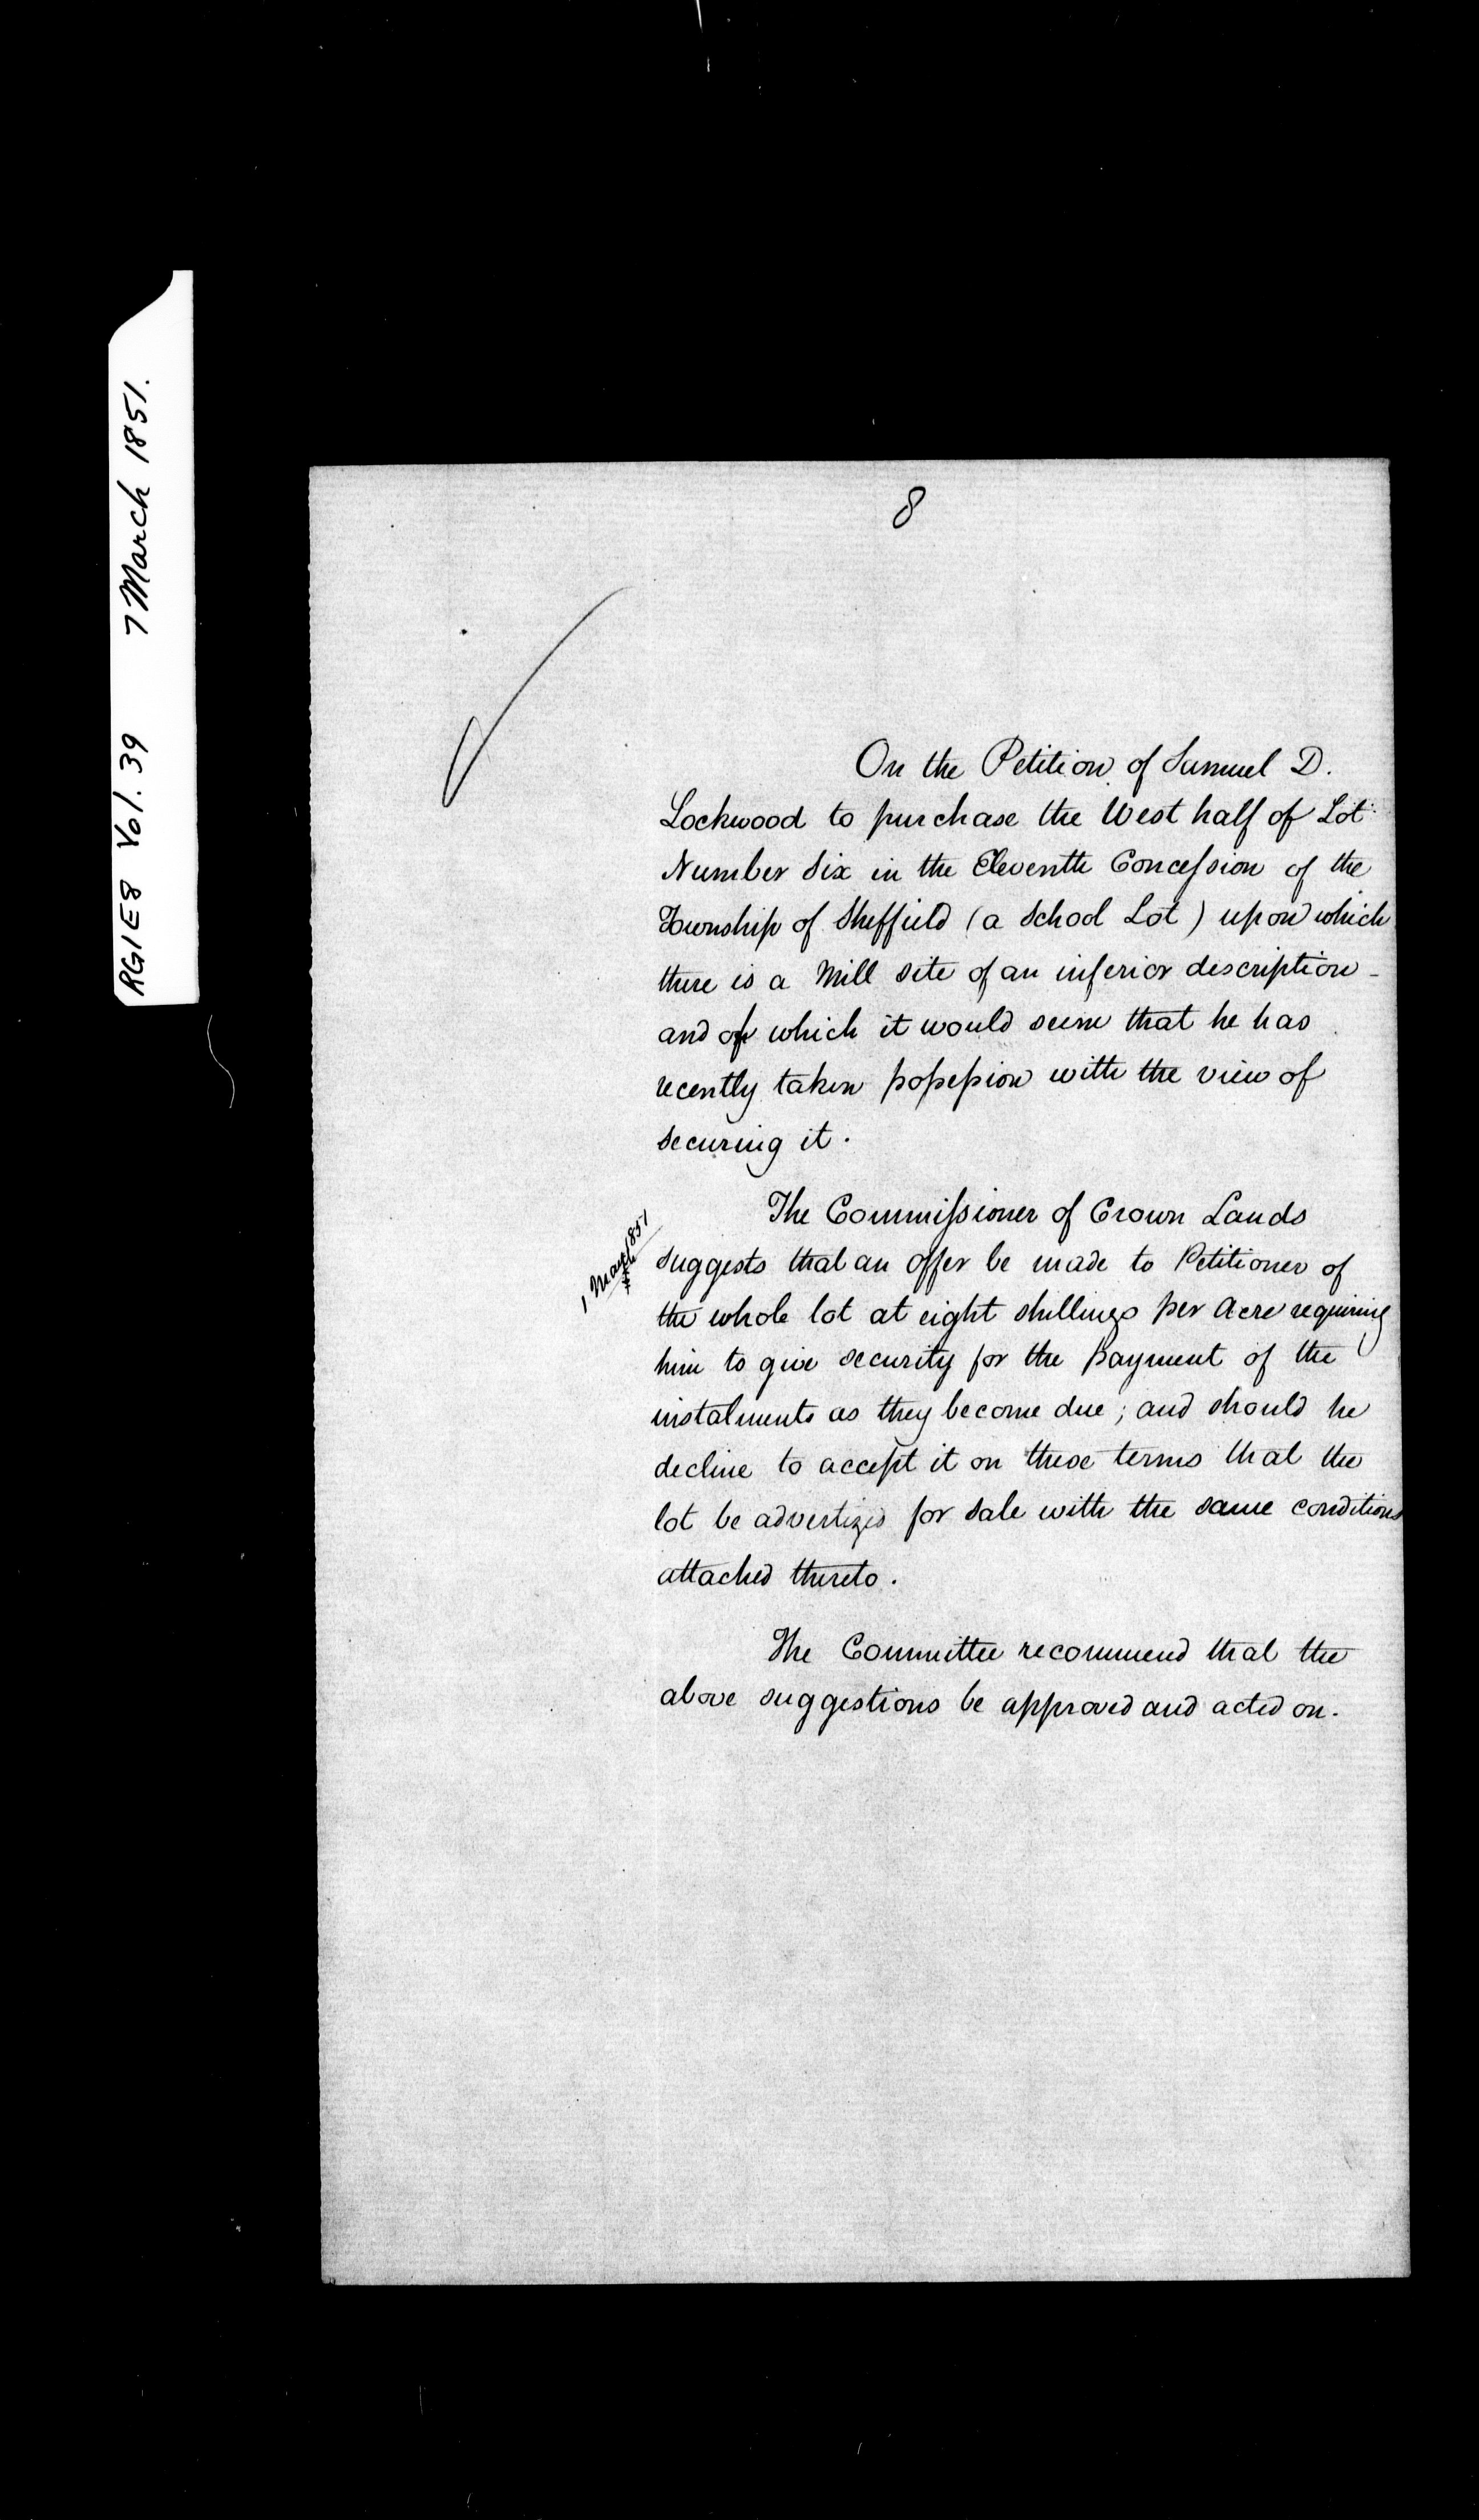 RG1E8 Vol. 39 7 March 1851.
8
On the Petition of Samuel D.
Lockwood to purchase the West half of Lot
Number Six in the Eleventh Concession of the
Township of Sheffield (a School Lot) upon which
there is a Mill site of an inferior description -
and of which it would seem that he has
recently taken possession with the view of
securing it.
The Commissioner of Crown Lands
1 March 1851
suggests that an offer be made to Petitioner of
the whole lot at eight shillings per Acre requiring
him to give security for the payment of the
instalments as they become due; and should he
decline to accept it on these terms that the
lot be advertized for sale with the same conditions
attached thereto.
The Committee recommend that the
above suggestions be approved and acted on.